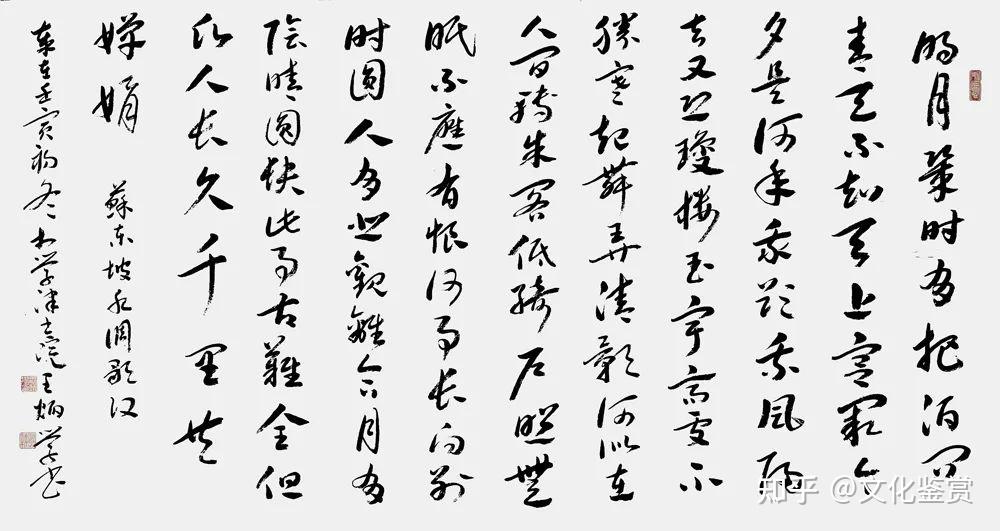 明月幾时有把酒问
青天不知天上宫阙今
夕是何年我欲乘风归
去又恐瓊楼玉宇高处不
勝寒起舞弄清影何似在
人间轉朱阁低绮户照無
眠不應有恨何事长向别
时圆人有悲歡離合月有
陰晴圆缺此事古難全但
願人长久千里共
嬋娟
蘇东坡水调歌头
岁在壬寅初冬 王炳学书
知乎 @文化鉴赏